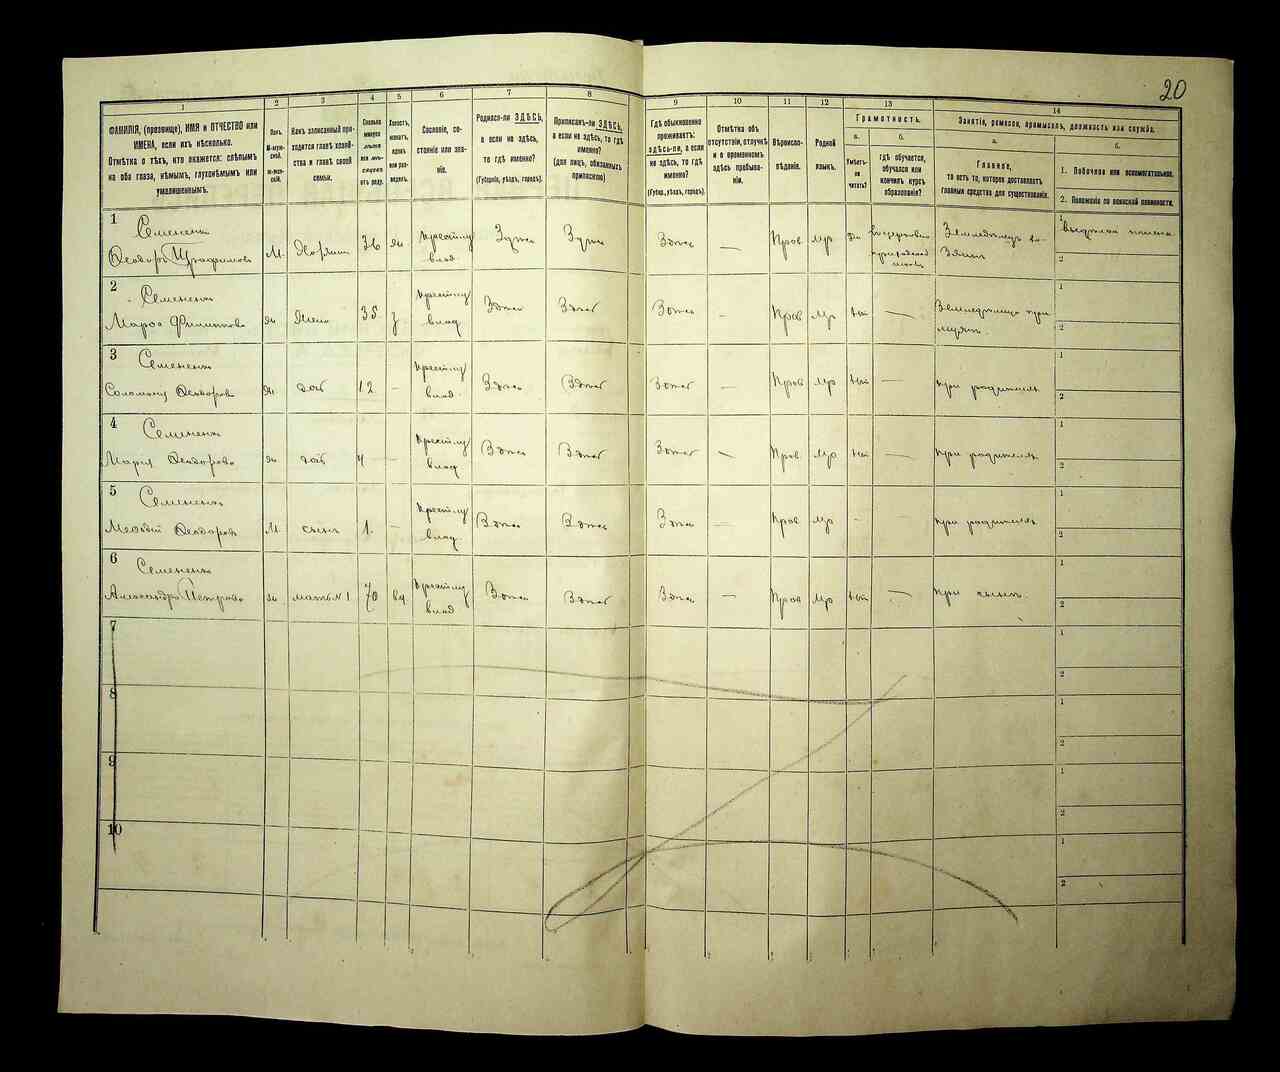 20
1
2
3
4
5
6
7
8
9
10
11
12
13
14
ФАМИЛІЯ, (прозвище), ИМЯ и ОТЧЕСТВО или
ИМЕНА, если ихъ нѣсколько.
Отмѣтка о тѣхъ, кто окажется: слѣпымъ
на оба глаза, нѣмымъ, глухонѣмымъ или
умалишеннымъ.
Полъ.
М-муж-
ской.
Ж-жен-
скій.
Какъ записанный при-
ходится главѣ хозяй-
ства и главѣ своей
семьи.
Сколько
минуло
лѣтъ
или мѣ-
сяцевъ
отъ роду.
Холостъ,
женатъ,
вдовъ
или раз-
веденъ.
Сословіе, со-
стояніе или зва-
ніе.
Родился-ли ЗДѢСЬ,
а если не здѣсь,
то гдѣ именно?
(Губернія, уѣздъ, городъ).
Приписанъ-ли ЗДѢСЬ,
а если не здѣсь, то гдѣ
именно?
(для лицъ, обязанныхъ
припискою)
Гдѣ обыкновенно
проживаетъ:
здѣсь-ли, а если
не здѣсь, то гдѣ
именно?
(Губер., уѣздъ, городъ).
Отмѣтка объ
отсутствіи, отлучкѣ
и о временномъ
здѣсь пребыва-
ніи.
Вѣроиспо-
вѣданіе.
Родной
языкъ.
Грамотность.
а.
б.
Умѣетъ-
ли
читать?
гдѣ обучается,
обучался или
кончилъ курсъ
образованія?
Занятіе, ремесло, промыселъ, должность или служба.
а.
б.
Главное,
то есть то, которое доставляетъ
главныя средства для существованія.
1. Побочное или вспомогательное.
2. Положеніе по воинской повинности.
1
Семененко
Ѳеодоръ Трофимовъ
М.
36
Здѣсь
Здѣсь
Здѣсь
—
Прав
Мр
1
2
2
Семененко
Жена
35
влад
Здѣсь
Здѣсь
Здѣсь
—
Прав
Мр
нѣт
—
1
2
3
Семененко
Ѳеодоров
дочь
12
-
влад
Здѣсь
Здѣсь
Здѣсь
—
Прав
Мр
нѣт
—
при родителях
1
2
4
Семененко
Мария Ѳеодорово
дочь
4
-
влад
Здѣсь
Здѣсь
Здѣсь
—
Прав
Мр
нѣт
—
при родителях
1
2
5
Семененко
Ѳеодоров
М.
сынъ
1.
-
влад
Здѣсь
Здѣсь
Здѣсь
—
Прав
Мр
-
-
при родителях
1
2
6
Семененко
Александра Петрово
мать №1
70
вд
влад
Здѣсь
Здѣсь
Здѣсь
—
Прав
Мр
нѣт
—
при сынѣ
1
2
7
1
2
8
1
2
9
1
2
10
1
2